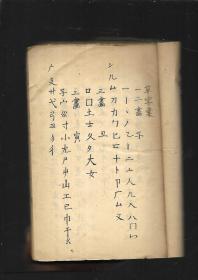 草字彙
一二畫 子
一丨丶丿乙亅二亠人儿入八冂冖
冫几凵刀力勹匕匚十卜卩厂厶又
三畫 丑
口囗土士夂夕大女
三畫 寅
子宀寸小尢尸屮山工己巾干幺
广廴廾弋弓